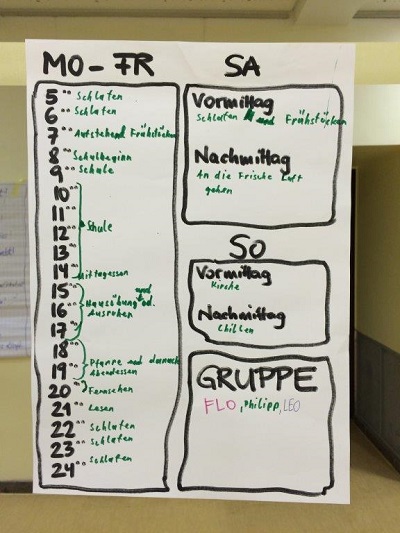 MO - FR
5⁰⁰ Schlafen
6⁰⁰ Schlafen
7⁰⁰ Aufstehen Frühstücken
8⁰⁰ Schulbeginn
9⁰⁰ Schule
10⁰⁰
11⁰⁰
12⁰⁰ Schule
13⁰⁰
14⁰⁰ Mittagessen
15⁰⁰
16⁰⁰ Hausübung und od.
Ausruhen
17⁰⁰
18⁰⁰
19⁰⁰ Pfarre und danach
Abendessen
20⁰⁰ Fernsehen
21⁰⁰ Lesen
22⁰⁰ Schlafen
23⁰⁰ Schlafen
24⁰⁰ Schlafen
SA
Vormittag
Schlafen und Frühstücken
Nachmittag
An die Frische Luft
gehen
SO
Vormittag
Kirche
Nachmittag
Chillen
GRUPPE
FLO, Philipp, LEO